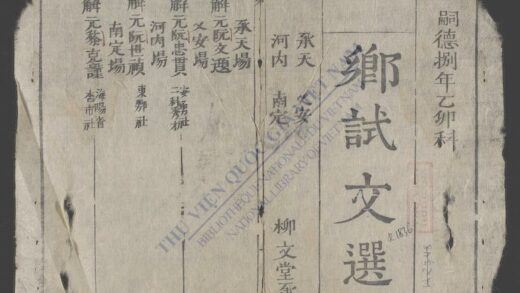 嗣德捌年乙卯科
鄉試文選
承天 乂安
河内 南定
柳文堂
承天場
解元阮文
乂安場
解元阮忠貫
河内場
解元阮世禎 東鄂社
南定場
解元 克謹 海陽省 市社
R.1836
THƯ VIỆN QUỐC GIA VIỆT NAM
BIBLIOTHÈQUE NATIONALE DU VIETNAM
NATIONAL LIBRARY OF VIETNAM